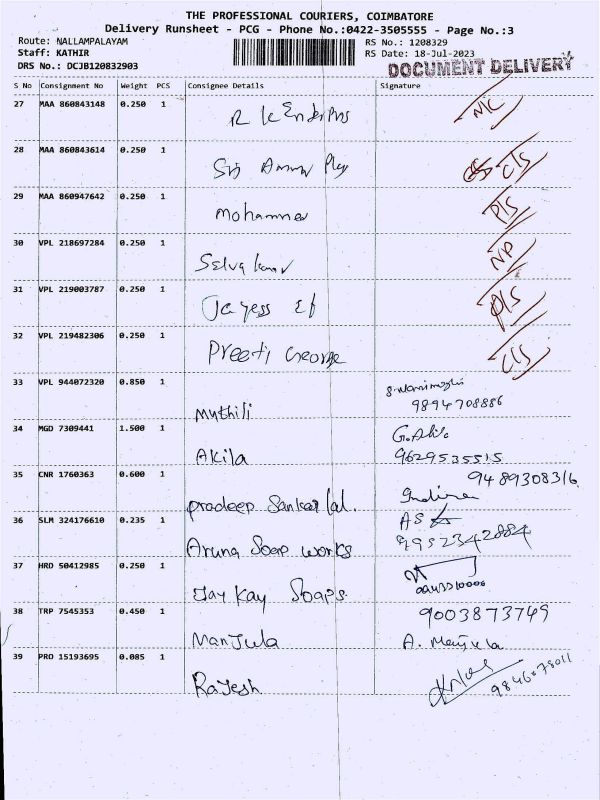 THE PROFESSIONAL COURIERS, COIMBATORE
Delivery Runsheet - PCG - Phone No.:0422-3505555 - Page No.:3
Route: NALLAMPALAYAM RS No.: 1208329
Staff: KATHIR RS Date: 18-Jul-2023
DRS No.: DCJB120832903 DOCUMENT DELIVERY
S No Consignment No Weight PCS Consignee Details Signature
27 MAA 860843148 0.250 1
28 MAA 860843614 0.250 1
C/S
29 MAA 860947642 0.250 1
Mohammed P/S
30 VPL 218697284 0.250 1
NP
Selva kumar
31 VPL 219003787 0.250 1
Jayess P/S
32 VPL 219482306 0.250 1
Preeti George C/S
33 VPL 944072320 0.850 1
9894708886
Mythili
34 MGD 7309441 1.500 1
Akila 9629535515
35 CNR 1760363 0.600 1 9489308316
Pradeep Sankar lal.
36 SLM 324176610 0.235 1
9952342884
Aruna Soap works
37 HRD 50412985 0.250 1
Jay Kay Soaps
38 TRP 7545353 0.450 1 9003873749
Manjula A. Manjula
39 PRO 15193695 0.085 1
Rajesh